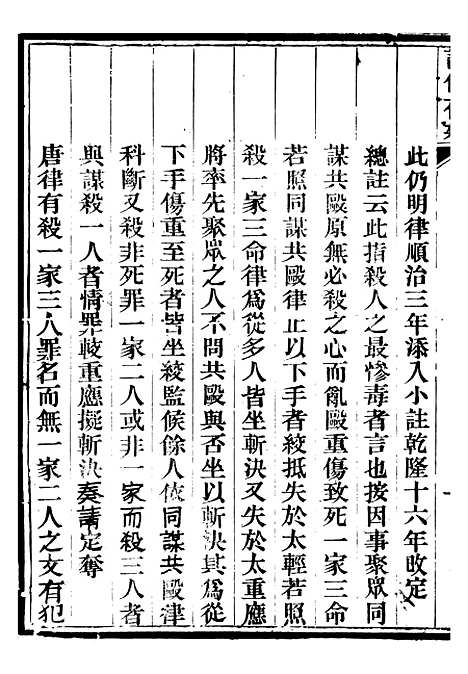 此仍明律順治三年添入小註乾隆十六年改定
總註云此指殺人之最慘毒者言也按因事聚眾同
謀共毆原無必殺之心而亂毆重傷致死一家三命
若照同謀共毆律止以下手者絞抵失於太輕若照
殺一家三命律爲從多人皆坐斬決又失於太重應
將率先聚眾之人不問共毆與否坐以斬決其爲從
下手傷重至死者皆坐絞監候餘人依同謀共毆律
科斷又殺非死罪一家二人或非一家而殺三人者
與謀殺一人者情罪較重應擬斬決奏請定奪
唐律有殺一家三人罪名而無一家二人之文有犯